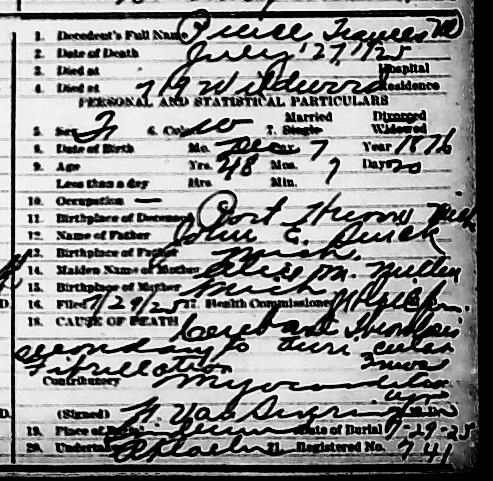 1. Decedent's Full Name Frances M
2. Date of Death July 27 '25
3. Died at Hospital
4. Died at 719 Wildwood Residence
PERSONAL AND STATISTICAL PARTICULARS
Married Divorced
5. Sex F 6. Color W 7. Single Widowed
8. Date of Birth Mo. Dec Day 7 Year 1876
9. Age Yrs. 48 Mos. 7 Days 20
Less than a day Hrs. Min.
10. Occupation —
11. Birthplace of Decedent Port Huron Mich
12. Name of Father John E.
13. Birthplace of Father Mich
14. Maiden Name of Mother M. Miller
15. Birthplace of Mother Mich
16. Filed 7/29/25 17. Health Commissioner
18. CAUSE OF DEATH Cerebral Thrombosis
secondary to auricular
Fibrillation 3 mos
Contributory Myocarditis
(Signed) M.D.
19. Place of Burial Date of Burial 7-29-25
20. Undertaker 21. Registered No. 741